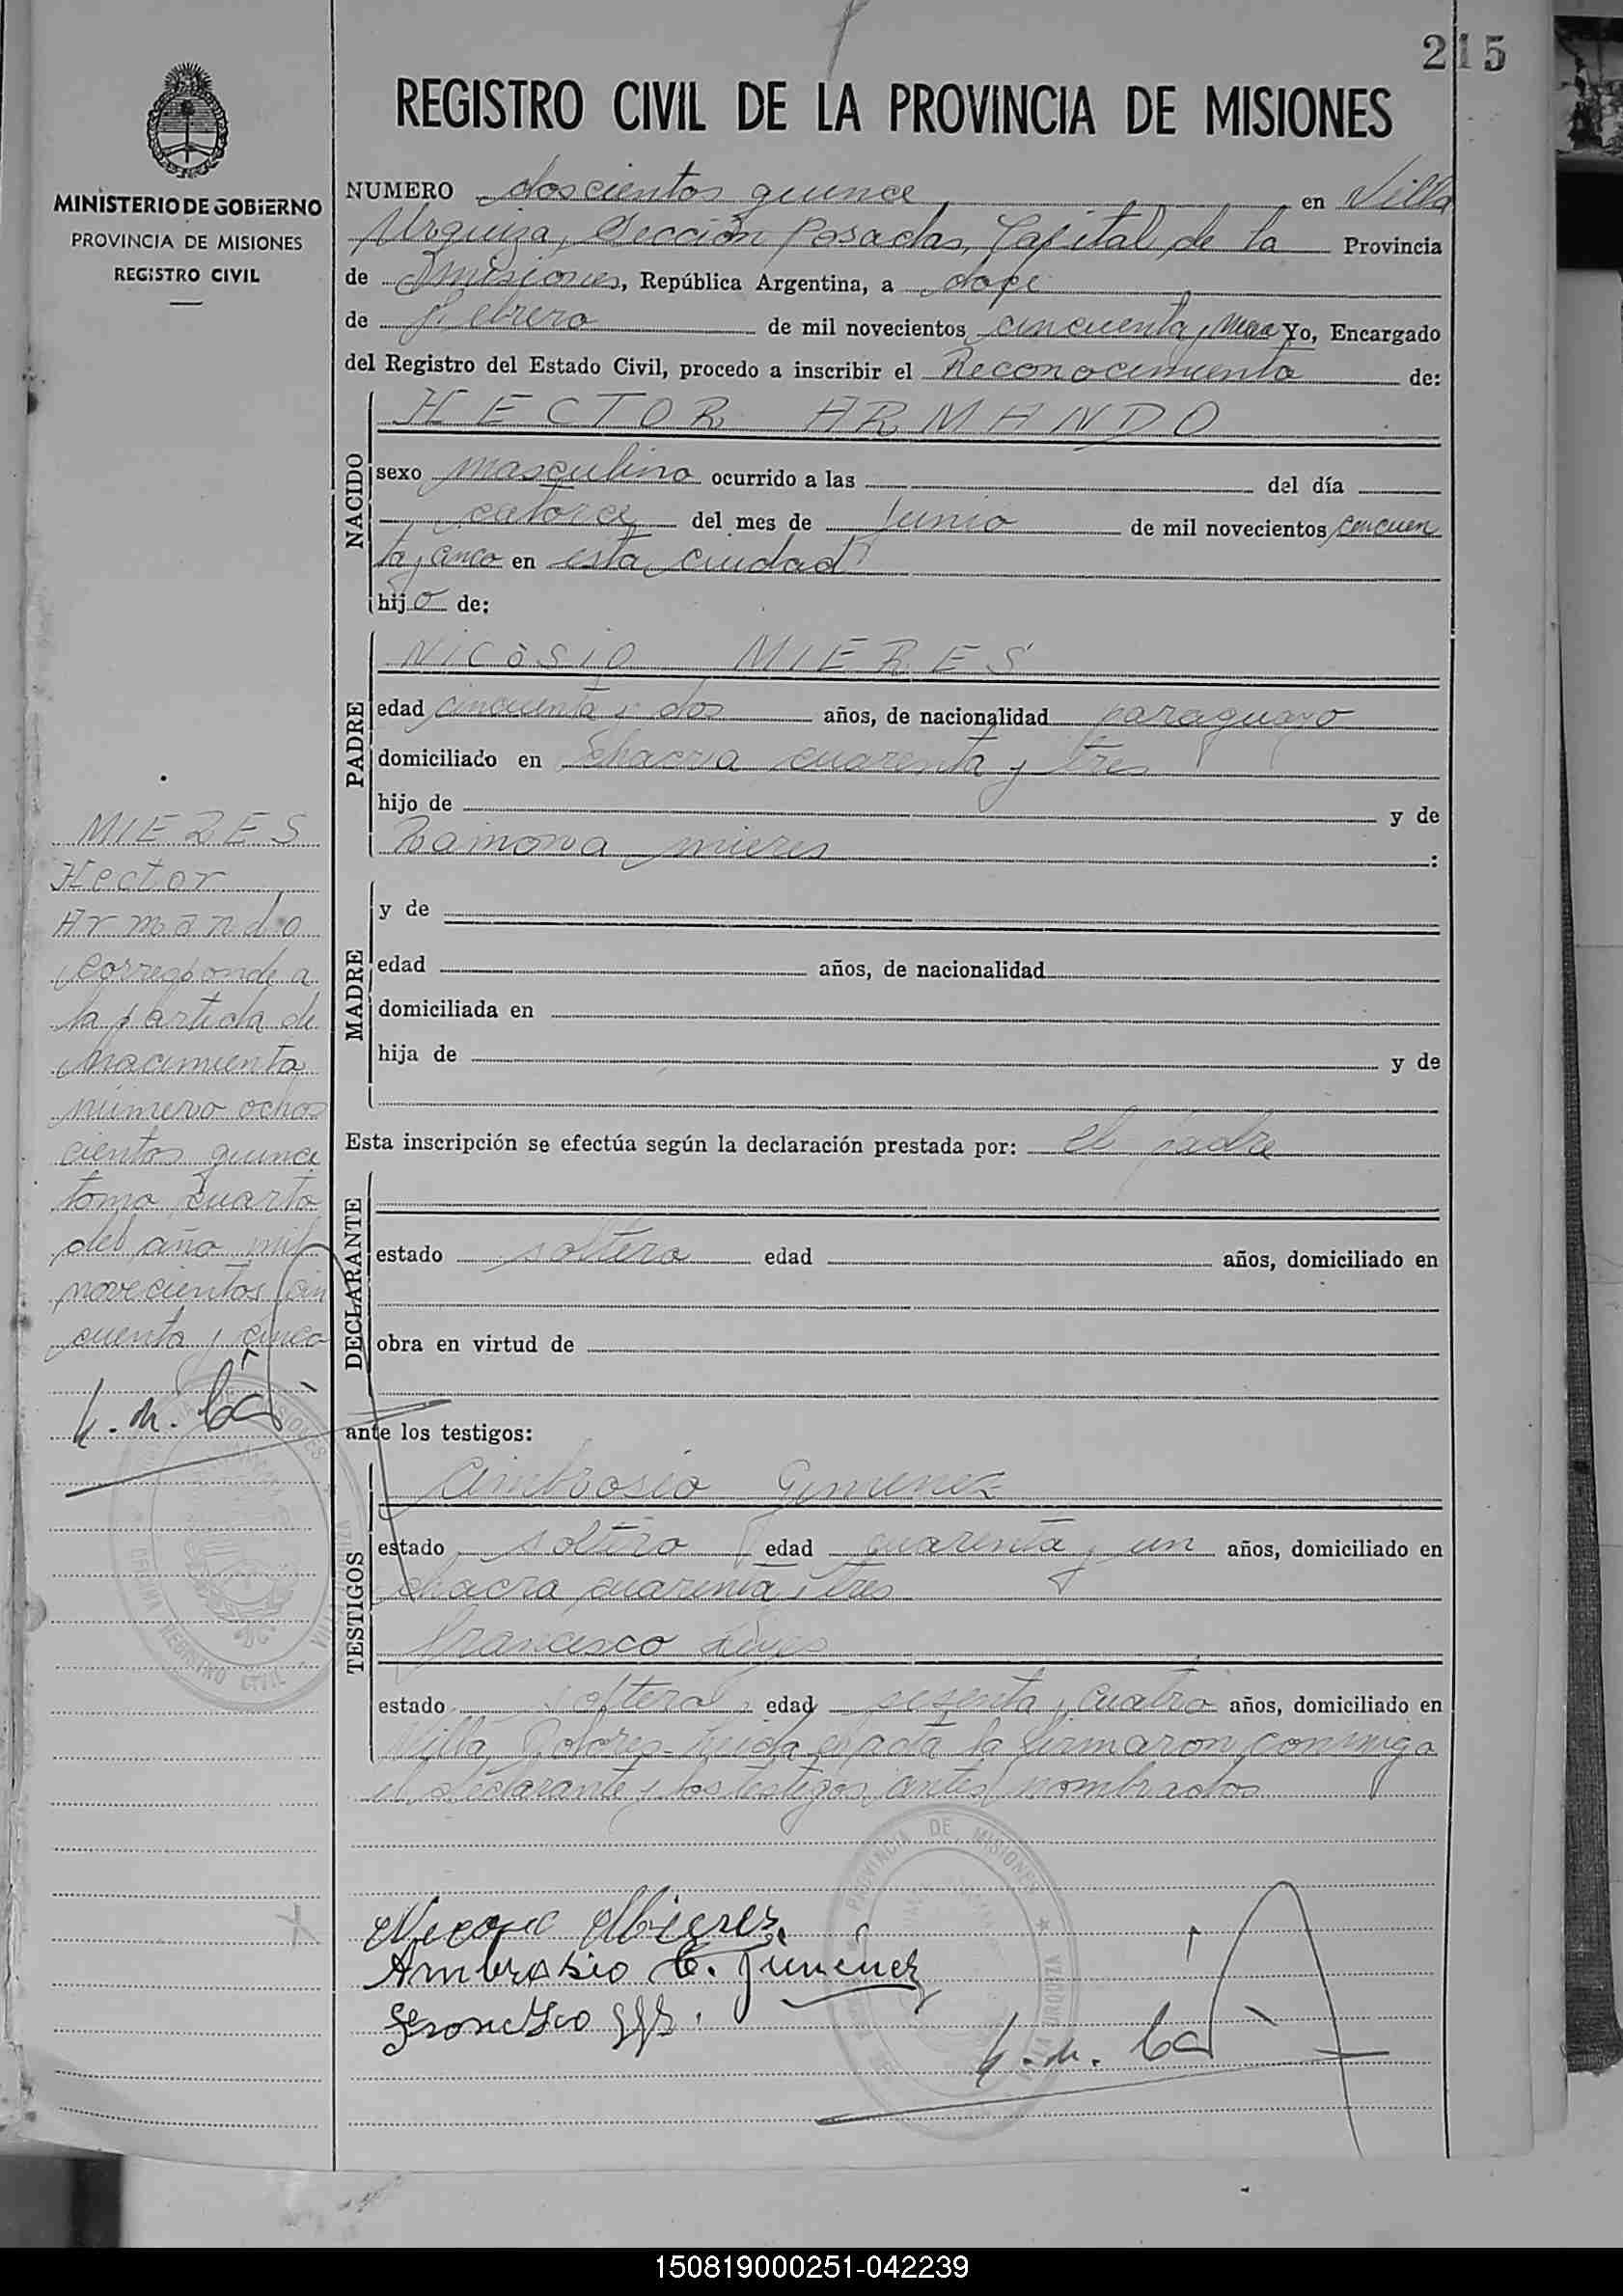 215
REGISTRO CIVIL DE LA PROVINCIA DE MISIONES
MINISTERIO DE GOBIERNO
PROVINCIA DE MISIONES
REGISTRO CIVIL
NUMERO doscientos quince en Villa
Urquiza, Sección Posadas, Capital de la Provincia
de Misiones, República Argentina, a doce
de Febrero de mil novecientos cincuenta y Yo, Encargado
del Registro del Estado Civil, procedo a inscribir el Reconocimiento de:
NACIDO
HECTOR ARMANDO
sexo masculino ocurrido a las del día
catorce del mes de Junio de mil novecientos cincuen
ta y cinco en esta ciudad
hijo de:
PADRE
NICOSIO MIERES
edad cincuenta y dos años, de nacionalidad paraguayo
domiciliado en Chacra cuarenta y tres
hijo de y de
Ramona mieres :
MADRE
y de
edad años, de nacionalidad
domiciliada en
hija de y de
Esta inscripción se efectúa según la declaración prestada por: el padre
DECLARANTE
estado soltero edad años, domiciliado en
obra en virtud de
ante los testigos:
TESTIGOS
Ambrosio Gimenez
estado soltero edad cuarenta y un años, domiciliado en
chacra cuarenta y tres
Francisco
estado soltero, edad sesenta y cuatro años, domiciliado en
Villa Dolores - Leida el acta la firmaron conmigo
el declarante y los testigos antes nombrados
MIERES
Hector
Armando
corresponde a
la partida de
Nacimiento
número ochos
cientos quince
tomo cuarto
del año mil
novecientos cin
cuenta y cinco
REGISTRO CIVIL
PROVINCIA DE MISIONES
URQUIZA
Mieres
Ambrosio C. Jimenez
150819000251-042239